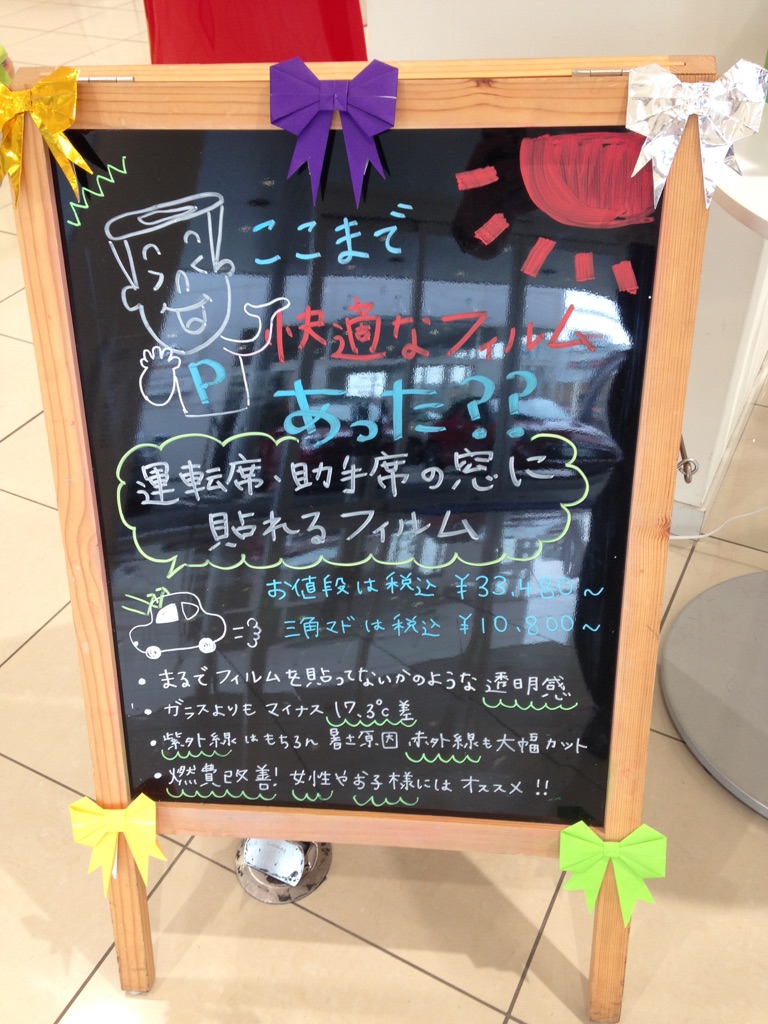 ここまで
快適なフィルム
あった??
P
運転席、助手席の窓に
貼れるフィルム
お値段は税込 ¥33,480~
三角マドは税込 ¥10,800~
• まるでフィルムを貼ってないかのような透明感
• ガラスよりもマイナス17.3℃差
• 紫外線はもちろん 暑さ原因 赤外線も大幅カット
• 燃費改善! 女性やお子様にはオススメ!!